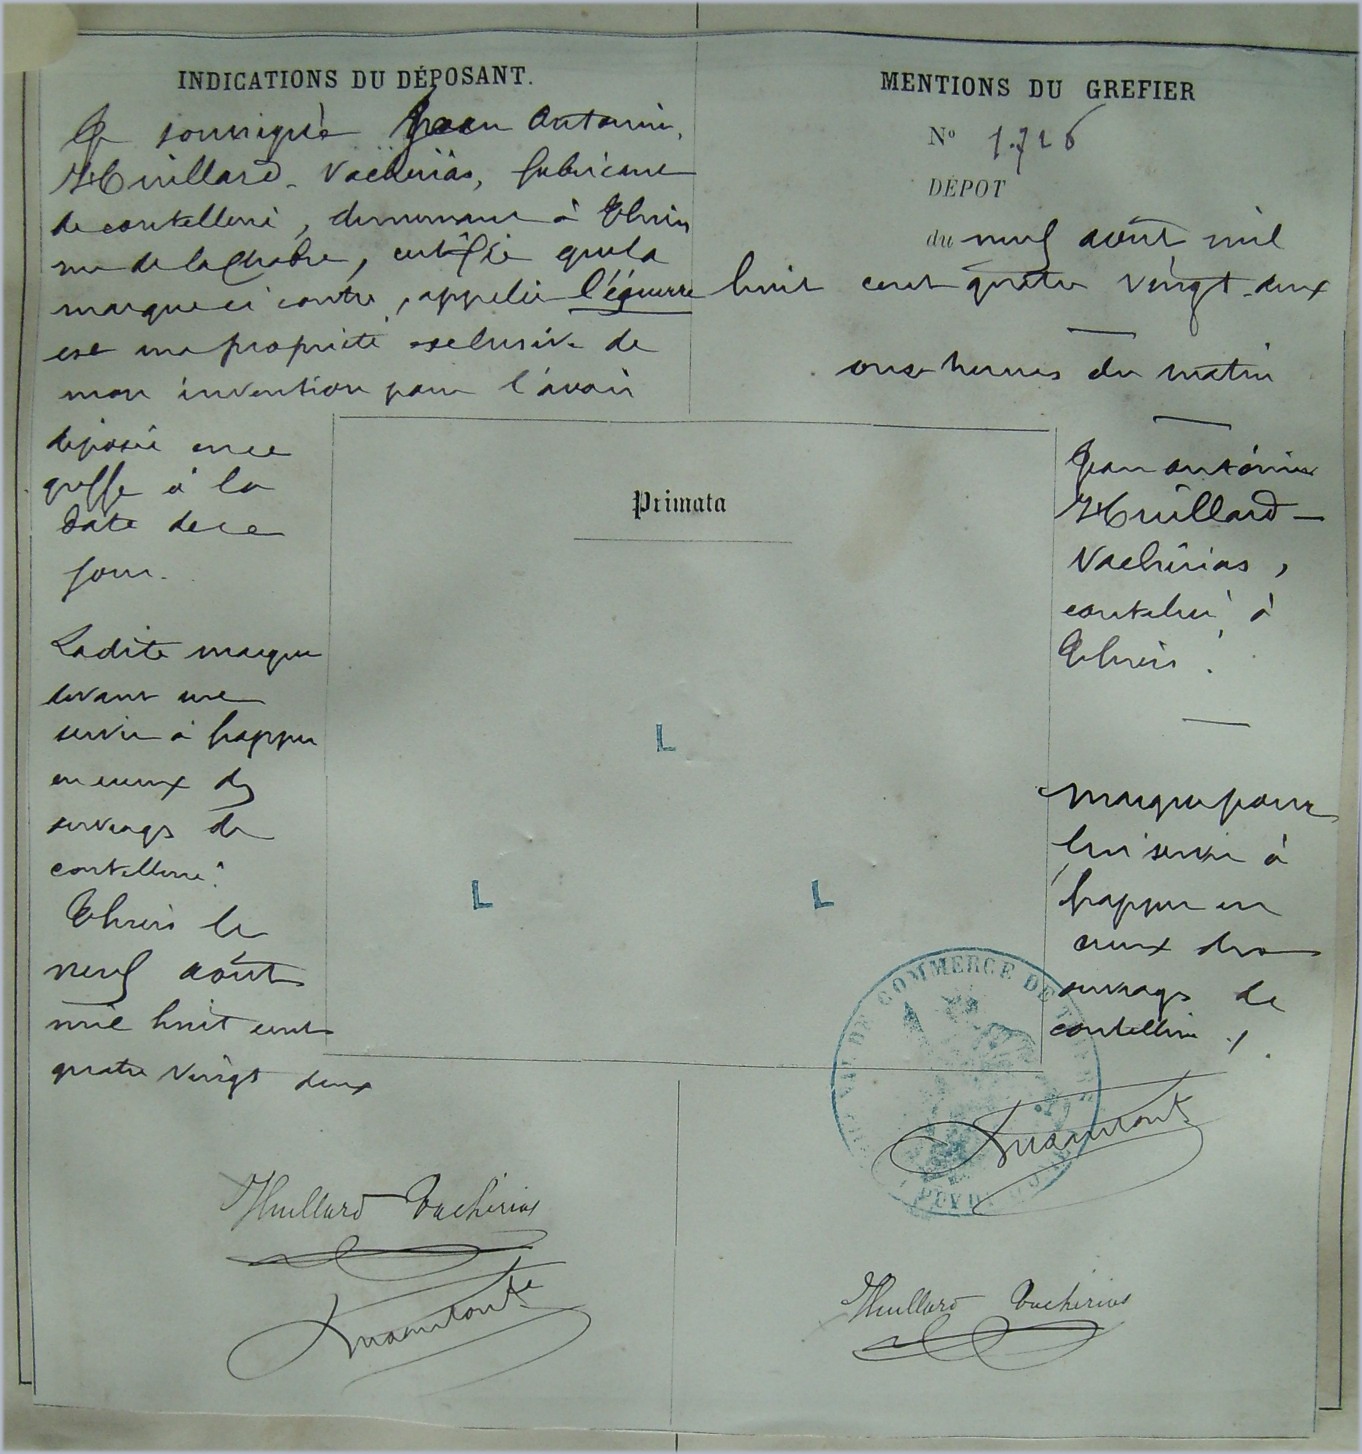 INDICATIONS DU DÉPOSANT.
Je soussigné Jean Antoine
Huillard-Vachérias, fabricant
de coutellerie, demeurant à Thiers
rue de la Chabre, certifie que la
marque ci contre, appelée l'équerre
est ma propriété exclusive de
mon invention pour l'avoir
déposée en ce
greffe à la
date de ce
jour.
Ladite marque
devant me
servir à frapper
en creux des
ouvrages de
coutellerie.
Thiers le
neuf août
mil huit cent
quatre vingt deux
Huillard Vachérias
MENTIONS DU GREFIER
No 1.726
DÉPOT
du neuf août mil
huit cent quatre vingt-deux
onze heures du matin
Jean Antoine
Huillard-
Vachérias,
coutelier à
Thiers.
Marque pour
lui servir à
frapper en
creux des
ouvrages de
coutellerie ./.
Huillard Vachérias
Primata
L
L L
DE COMMERCE DE
PUY